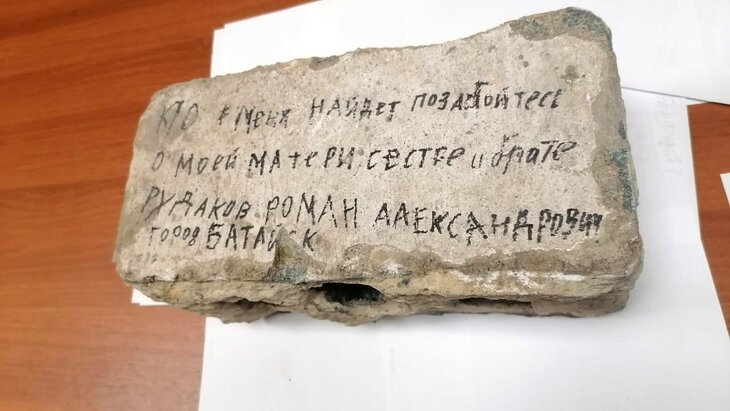 КТО меня НАЙДЕТ ПОЗАБОЙТЕСЬ
О МОЕЙ МАТЕРИ, СЕСТРЕ и брате
РУДАКОВ РОМАН АЛЕКСАНДРОВИЧ
город БАТАЙСК